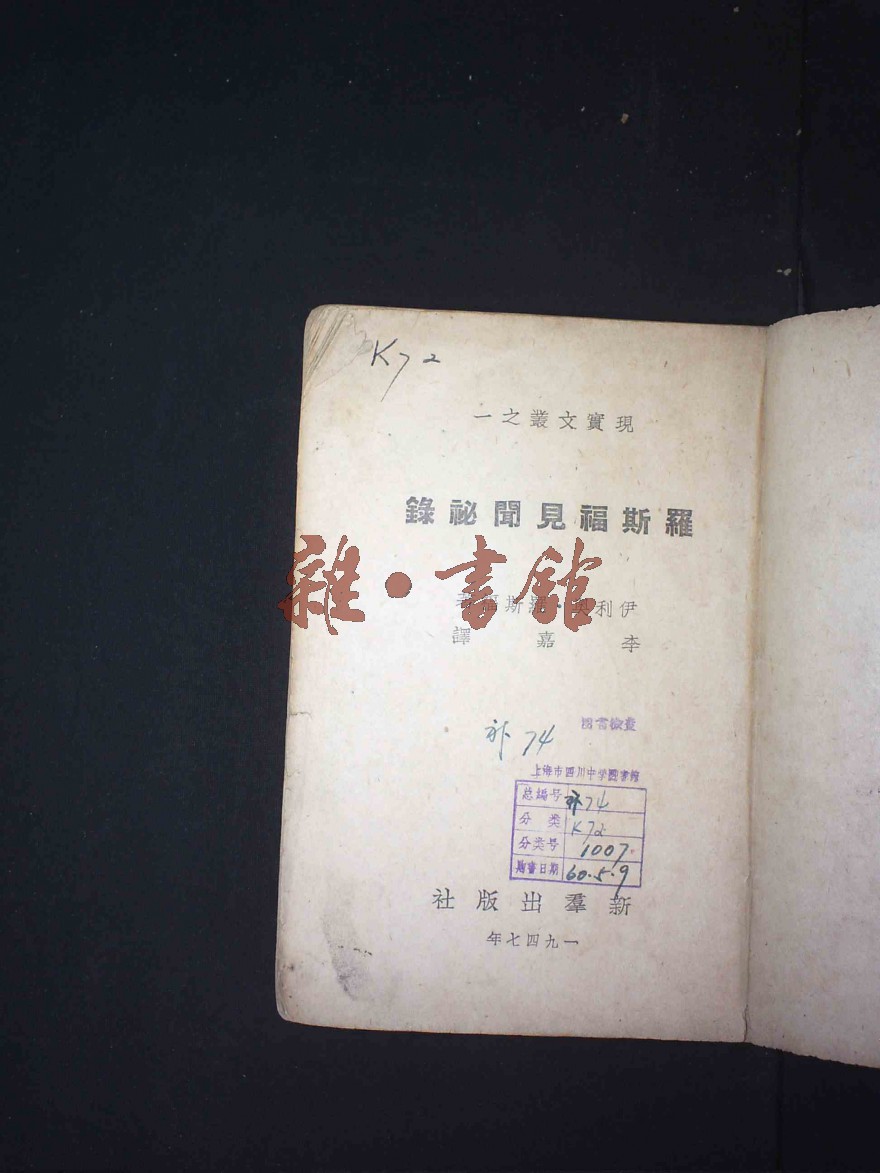 K72
現實文叢之一
羅斯福見聞祕錄
雜·書館
伊利奧·羅斯福著
李嘉譯
补74
上海市四川中学圖書館
总编号 补74
分类 K72
分类号 1007
购書日期 60.5.9
新羣出版社
一九四七年